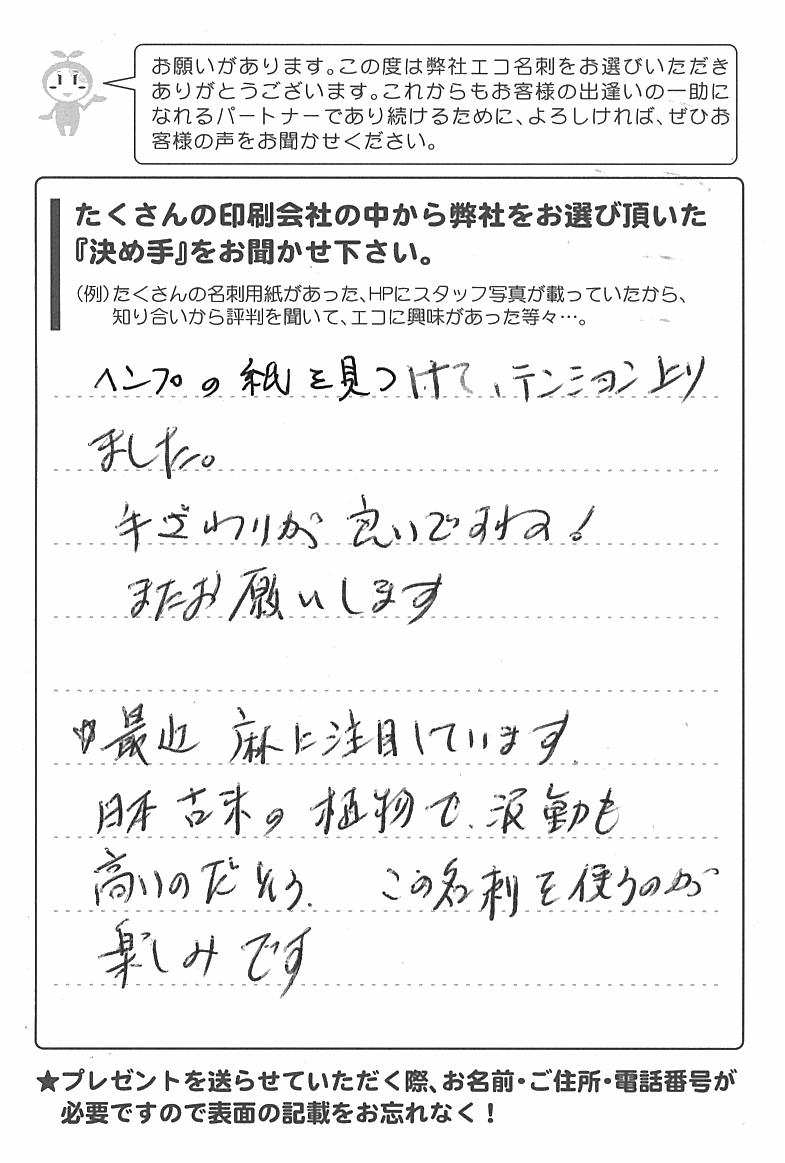 お願いがあります。この度は弊社エコ名刺をお選びいただき
ありがとうございます。これからもお客様の出逢いの一助に
なれるパートナーであり続けるために、よろしければ、ぜひお
客様の声をお聞かせください。
たくさんの印刷会社の中から弊社をお選び頂いた
『決め手』をお聞かせ下さい。
(例)たくさんの名刺用紙があった、HPにスタッフ写真が載っていたから、
知り合いから評判を聞いて、エコに興味があった等々…。
ヘンプの紙を見つけて、テンション上り
ました。
手ざわりが良いですね!
またお願いします
最近麻に注目しています。
日本古来の植物で、波動も
高いのだそう。この名刺を使うのが
楽しみです
★プレゼントを送らせていただく際、お名前・ご住所・電話番号が
必要ですので表面の記載をお忘れなく!